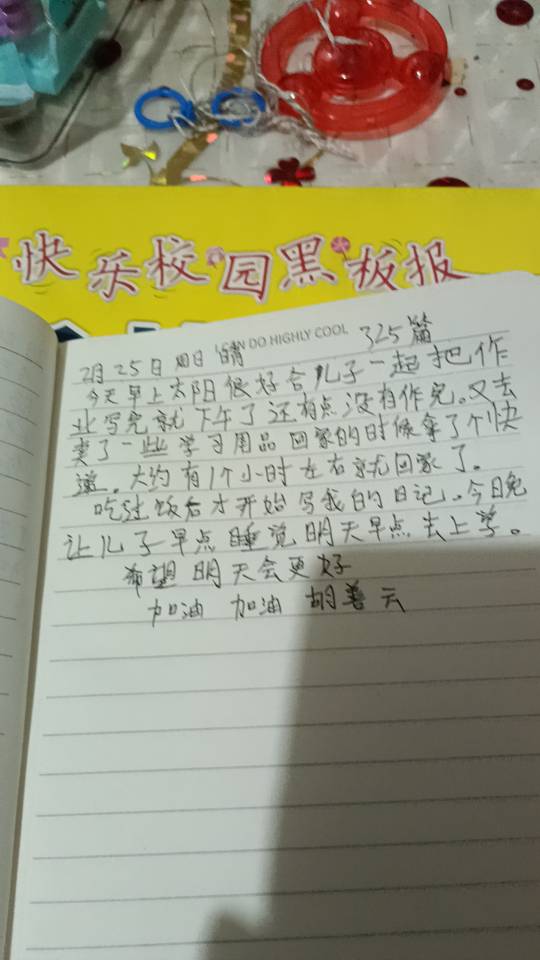 快乐校园黑板报
I CAN DO HIGHLY COOL
2月25日 周日 晴 325篇
今天早上太阳很好合儿子一起把作
业写完就下午了还有点没有作完。又去
卖了一些学习用品回家的时候拿了个快
递。大约有1个小时左右就回家了。
吃过饭后才开始写我的日记。今日晚
让儿子早点睡觉明天早点去上学。
希望明天会更好
加油 加油 胡善云